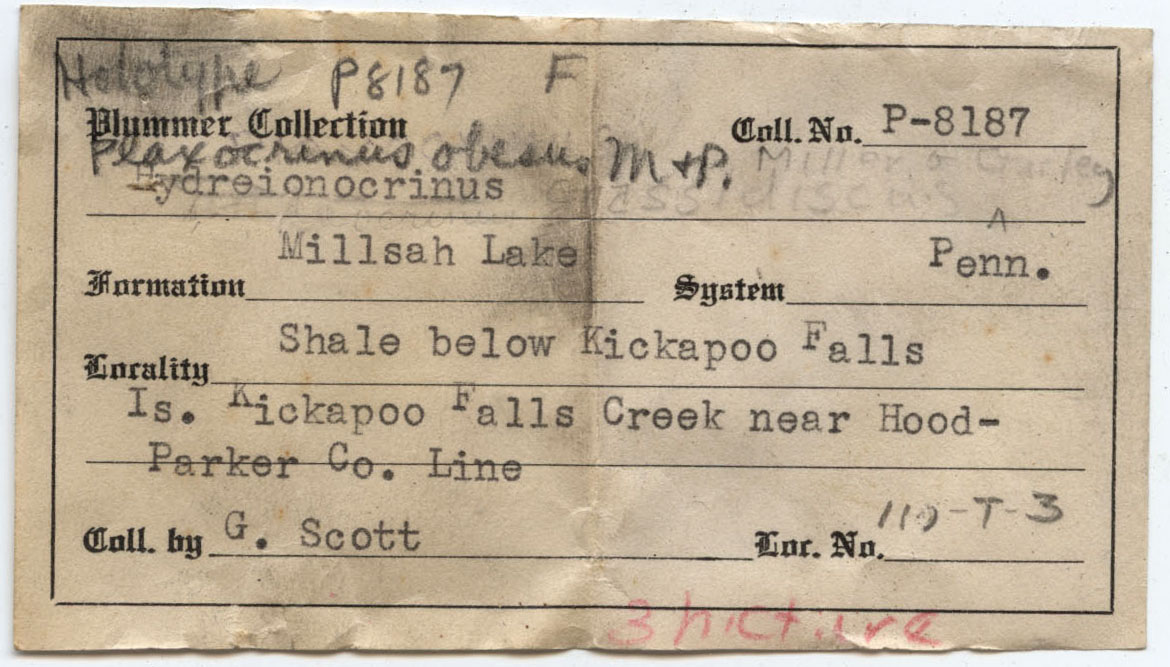 Holotype P8187 F
Plummer Collection Coll. No. P-8187
Plaxocrinus obesus M+P. Miller & Gurley
Hydreionocrinus crassidiscus
Millsah Lake Penn.
Formation System
Shale below Kickapoo Falls
Locality
Is. Kickapoo Falls Creek near Hood-
Parker Co. Line
Coll. by G. Scott Loc. No. 110-T-3
3 picture